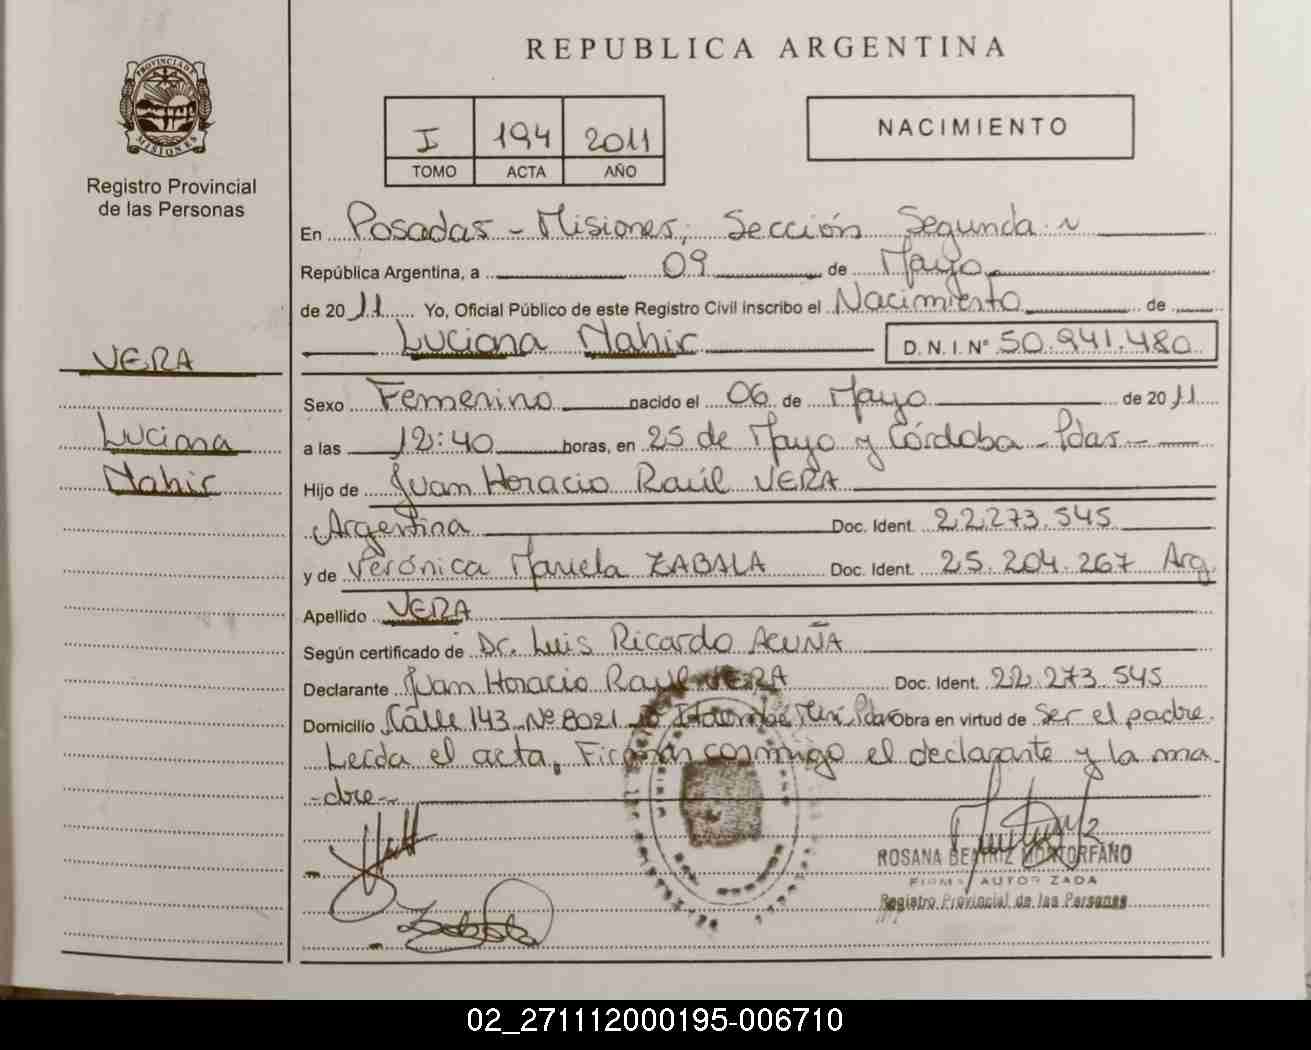 PROVINCIA DE
MISIONES
Registro Provincial
de las Personas
VERA
Luciana
Nahir
REPUBLICA ARGENTINA
I 194 2011
TOMO ACTA AÑO
NACIMIENTO
En Posadas - Misiones, Sección Segunda
República Argentina, a 09 de Mayo
de 2011 Yo, Oficial Público de este Registro Civil inscribo el Nacimiento de
Luciana Nahir D.N.I.Nº 50.941.480
Sexo Femenino nacido el 06 de Mayo de 2011
a las 12:40 horas, en 25 de Mayo y Córdoba - Pdas -
Hijo de Juan Horacio Raúl VERA
Argentina Doc. Ident. 22.273.545
y de Verónica Mariela ZABALA Doc. Ident. 25.204.267 Arg.
Apellido VERA
Según certificado de Dr. Luis Ricardo ACUÑA
Declarante Juan Horacio Raúl VERA Doc. Ident. 22.273.545
Domicilio Calle 143 Nº 8021 Itaembé Miní Pdas Obra en virtud de ser el padre.
Leída el acta, Firman conmigo el declarante y la ma-
-dre-
ROSANA BEATRIZ MONTORFANO
FIRMA AUTORIZADA
Registro Provincial de las Personas
02_271112000195-006710